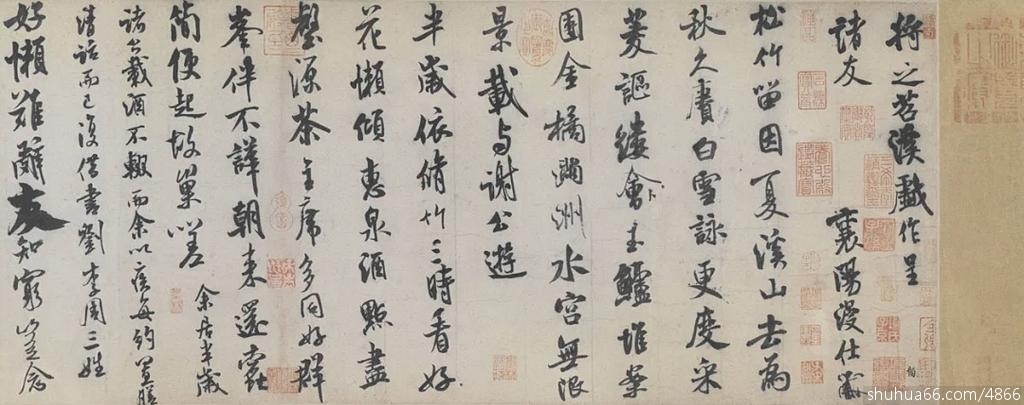 将之苕溪戲作呈
諸友
襄陽漫仕黻
松竹留因夏溪山去為
秋久賡白雪詠更度采
菱謳縷會玉鱸堆案
團金橘滿洲水宫無限
景載與謝公遊
半歲依脩竹三時看好
花懶傾惠泉酒點盡
壑源茶主席多同好群
峯伴不譁朝来還蠹
簡便起故巢嗟
余居半歲
諸公載酒不輟而余以疾每約置膳
清話而已復借書劉李周三姓
好懶難辭友知窮豈念
shuhua66.com/4866